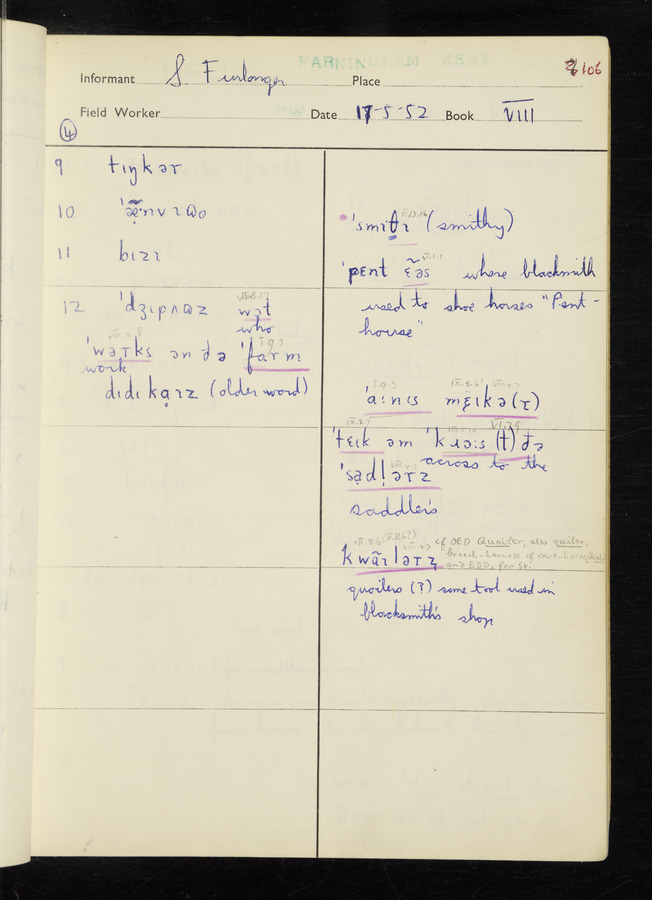 FARNINGHAM KENT
106
Informant S. Furlonger Place
Field Worker DW Date 17-5-52 Book VIII
4
9 tɪŋkəɾ
10
11 bɪzɪ
12 ˈdʒɪpʌɒz wət
who
ˈwəɾks ən ðə ˈfaɾm
work
dɪdɪkạɪz (older word)
(smithy)
ˈpɛnt ɛ̃əs where blacksmith
used to shoe horses "Pent-
house"
ˈa:nɪs mɛ̈ɪkə(ɾ)
ˈtɛɪk əm ˈkɹɔ:s (t) ðə
across to the
ˈsạdḷəɾz
saddlers
kwãɪləɾz cf OED Quoiler, also quiler,
breech-harness of cart-horse
and EDD, for Sr.
quoilers (?) some tool used in
blacksmith's shop